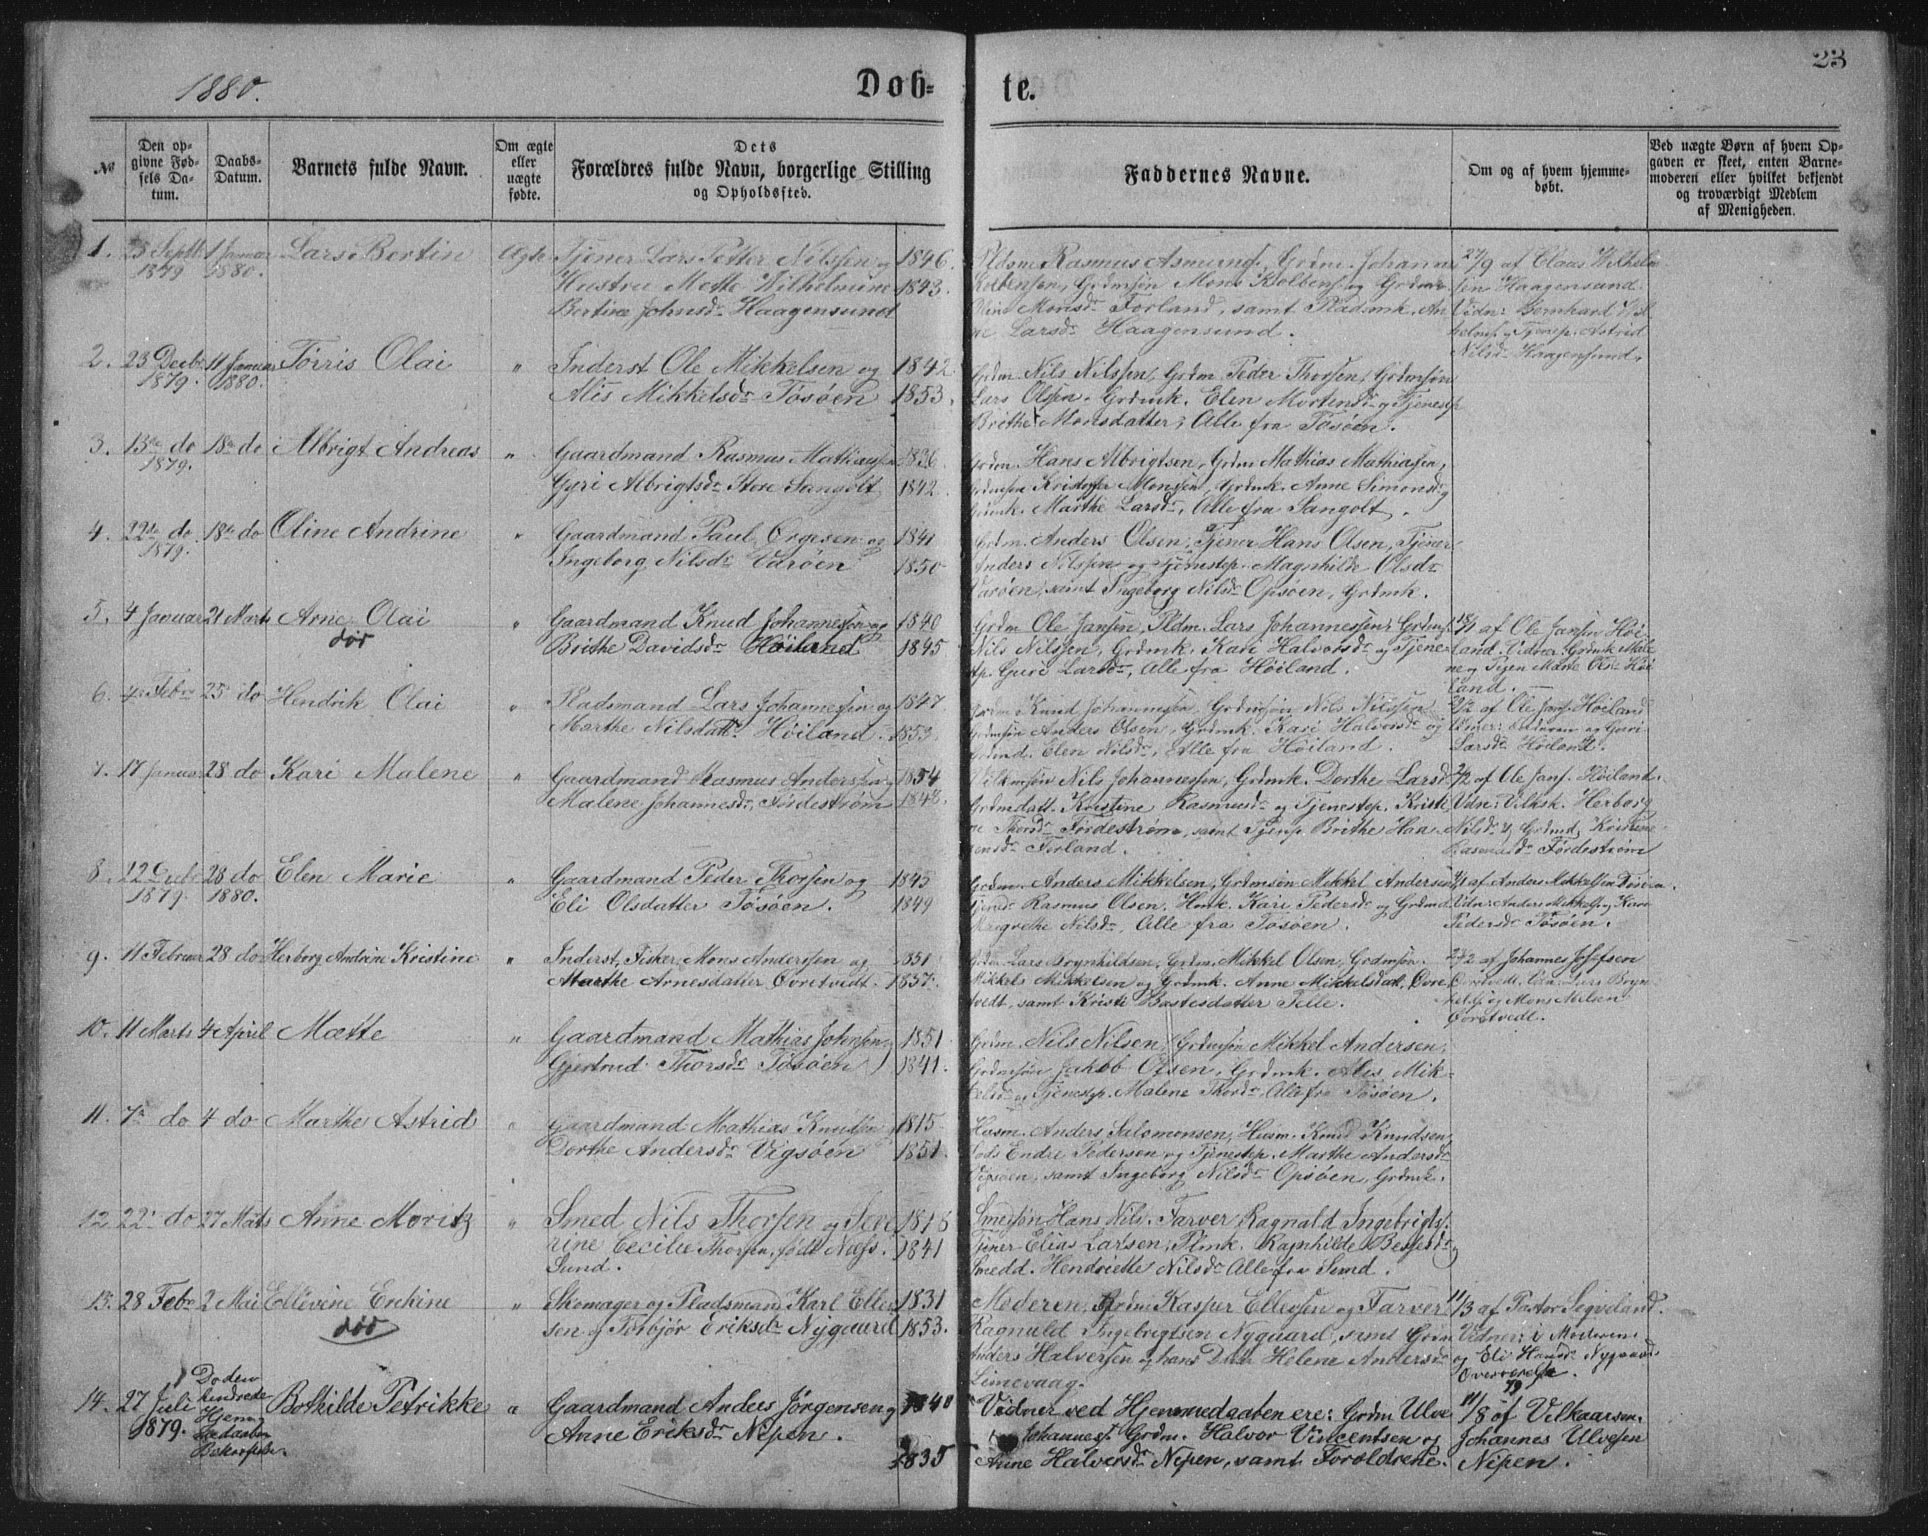 1880.
Døb-
te.
23
№
Den op-
givne Fød-
sels Da-
tum.
Daabs-
Datum.
Barnets fulde Navn.
Om ægte
eller
uægte
fødte.
Dets
Forældres fulde Navn, borgerlige Stilling
og Opholdssted.
Faddernes Navne.
Om og af hvem hjemme-
døbt.
Ved uægte Børn af hvem Op-
gaven er skeet, enten Barne-
moderen eller hvilket bekjendt
og troværdigt Medlem
af Menigheden.
1. 25 Septb. 1 Januar Lars Bertin Ægte Tjener Lars Petter Nilssen og 1846.
1879 1880. Hustru Mette Wilhelmine 1843.
Bertine Johnsdr Haagensund
Rasmus Asmunds., Grdm. Johannes
Kolbensen, Grdmsøn Mons Kolbens. og
Monsdr Forland, samt Pladsmk. An-
ne Larsdr Haagensund.
27/9 af Claus Wilhelm-
sen Haagensund
Vidn: Bernhard Wil-
helms. og Tjenp. Astrid
Nilsdr Haagensund.
2. 23 Decbr 11 Januar Tørris Olai " Inderst Ole Mikkelsen og 1842
1879. 1880. Alis Mikkelsdr Tøsøen 1853.
Grdm. Nils Nilssen, Grdm Peder Thorsen, Grdmsøn
Lars Olsen, Grdmk. Elen Mortensdr og Tjenestep
Brithe Monsdatter, Alle fra Tøsøen.
3. 13de do 18de do Albrigt Andreas " Gaardmand Rasmus Mathiassen 1836
1879. Gyri Albrigtsdr Store Sangolt 1842.
Grdm. Hans Albrigtsen, Grdm Mathias Mathiassen,
Grdmsøn Kristoffer Monsen, Grdmk. Anne Simonsdr og
Grdmk. Marthe Larsdr, Alle fra Sangolt.
4. 22de do 18de do Oline Andrine " Gaardmand Paul Ørgesen og 1841
1879. Ingeborg Nilsdr Varøen 1850
Grdm. Anders Olsen, Tjener Hans Olsen, Tjener
Anders Nilssen og Tjenstep. Magnhilde Olsdr
Varøen, samt Ingeborg Nilsdr Opsøen, Grdmk.
5. 4 Januar 21 Marts Arne Olai " Gaardmand Knud Johannessen og 1840
dør Brithe Davidsdr Høiland 1845
Grdm Ole Jansen, Pldm. Lars Johannessen, Grdms.
Nils Nilssen, Grdmk. Kari Halvorsdr og Tjene-
stp. Guri Larsdr, Alle fra Høiland.
af Ole Jansen Høi-
land. Vidner: Grdmk Male-
ne og Pigen Marte Olsdr Høi-
land.
6. 4 Febr. 25 do Hendrik Olai " Pladsmand Lars Johannessen og 1847
Marthe Nilsdatt. Høiland. 1853.
Grdm Knud Johannessen, Grdmsøn Nils Nilssen
Grdmsøn Anders Olsen, Grdmk. Kari Halvorsdr og
Elen Nilsdr, Alle fra Høiland.
af Ole Jans. Høiland
Larsdr Høiland.
7. 17 Januar 28 do Kari Malene " Gaardmand Rasmus Anderssen og 1854
Malene Johannesdr, Førdestrøm 1848.
Nils Johannessen, Grdmk. Dorthe Larsd
Grdmdatt. Kristine Rasmusdr og Tjenestep. Kristi-
ne Thorsdr Førdestrøm, samt Tjenp. Brithe Han-
sensdr Forland.
af Ole Jans. Høiland.
Vidn: Vilksk. Herborg
Nilsdr og Grdmd. Kristine
Rasmusdr Førdestrøm
8. 22 Decbr 28 do Elen Marie " Gaardmand Peder Thorsen og 1845
1879. 1880. Eli Olsdatter Tøsøen. 1849
Grdm. Anders Mikkelsen, Grdmsøn Mikkel Andersen
Rasmus Olsen, Kari Pedersdr og Grdmd
Margrethe Nilsdr, Alle fra Tøsøen.
af Anders Mikkelsen Tøsøen.
Vidn: Anders Mikkels og Kari
Pedersdr Tøsøen.
9. 11 Februar 28 do Herborg Andrine Kristine " Inderst, Fisker Mons Anderssen og 1851
Marthe Arnesdatter Øvretvedt. 1837.
Grdm Lars Brynhildsen, Grdm. Mikkel Olsen, Grdmsøn.
Mikkel Mikkelsen og Grdmk. Anne Mikkelsdatt. Øvre-
tvedt, samt Kristi Bastesdatter Telle.
23/2 af Johannes Josefsen
Øvretvedt. Vidn. Lars Bryn-
hilds og Mons Nielsen
Øvretvedt.
10. 11 Marts 4 April Mætte " Gaardmand Mathias Johnsen 1851
Gjertrud Thorsdr Tøsøen 1841.
Grdm. Nils Nilsen, Grdmsøn Mikkel Andersen,
Grdmsøn Jakob Olsen, Grdmk. Alis Mik-
kelsdr og Tjenestep. Malene Thorsdr, Alle fra Tøsøen.
11. 7de do 4 do Marthe Astrid " Gaardmand Mathias Knudsen 1815
Dorthe Andersdr Vigsøen 1851.
Husm. Anders Salomonsen, Husm. Knud Knudsen,
Endre Pedersen og Tjenestep. Marthe Andersdr
Vigsøen, samt Ingeborg Nilsdr Opsøen, Grdmk.
12. 22 do 27 Mats Anne Moritz " Smed Nils Thorsen og Seve- 1818
rine Cecilie Thorsen, født Næss. 1841
Sund.
Smedsøn Hans Nils. Farver Ragnald Ingebrigts.
Tjener Elias Larsen, Plmk. Ragnhilde Bessesdr og
Smedd. Henriette Nilsdr Alle fra Sund.
13. 28 Febr 2 Mai Ellevine Erekine " Skomager og Pladsmand Karl Ellef- 1831
dør sen og Torbjør Eriksdr Nygaard 1853.
Moderen, Grdm Kasper Ellefsen og Farver
Ragnald Ingebrigtsen Nygaard, samt Grdm
Anders Halversen og hans Datr Helene Andersdr
Limevaag.
11/3 af Pastor Segveland.
Vidner: Moderen
og Eli Hansdr Nygaard
Overværelse.
14. 27 Juli Daaben Bothilde Petrikke " Gaardmand Anders Jørgensen og 1840
1879. Hjem- Anne Eriksdr Nipen. 1835
medaaben
Vidner ved Hjemmedaaben ere: Grdm Ulve
Johanness. Grdm. Halvor Vincentsen og
Anne Halversdr Nipen, samt Foreldrene.
79
11/8 af Vilkaarsm.
Johannes Ulvesen
Nipen.